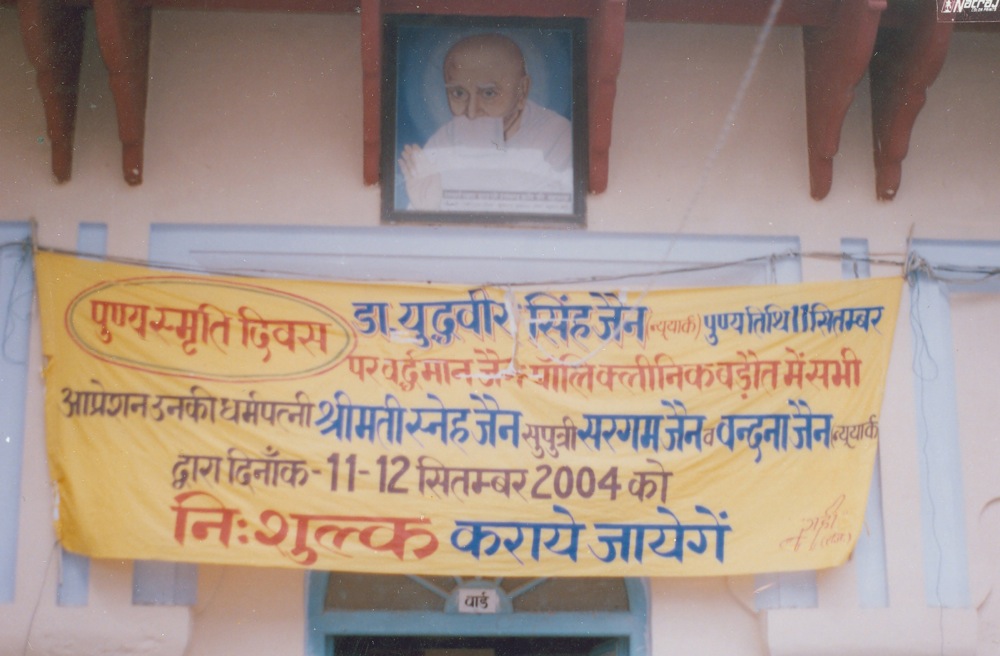 Natraj
पुण्य स्मृति दिवस डा. युद्धवीर सिंह जैन (न्यूयार्क) पुण्य तिथि 11 सितम्बर
पर वर्द्धमान जैन पॉलि क्लीनिक बड़ौत में सभी
आप्रेशन उनकी धर्मपत्नी श्रीमती स्नेह जैन सुपुत्री सरगम जैन व वन्दना जैन न्यूयार्क
द्वारा दिनाँक - 11-12 सितम्बर 2004 को
निःशुल्क कराये जायेगें
वार्ड